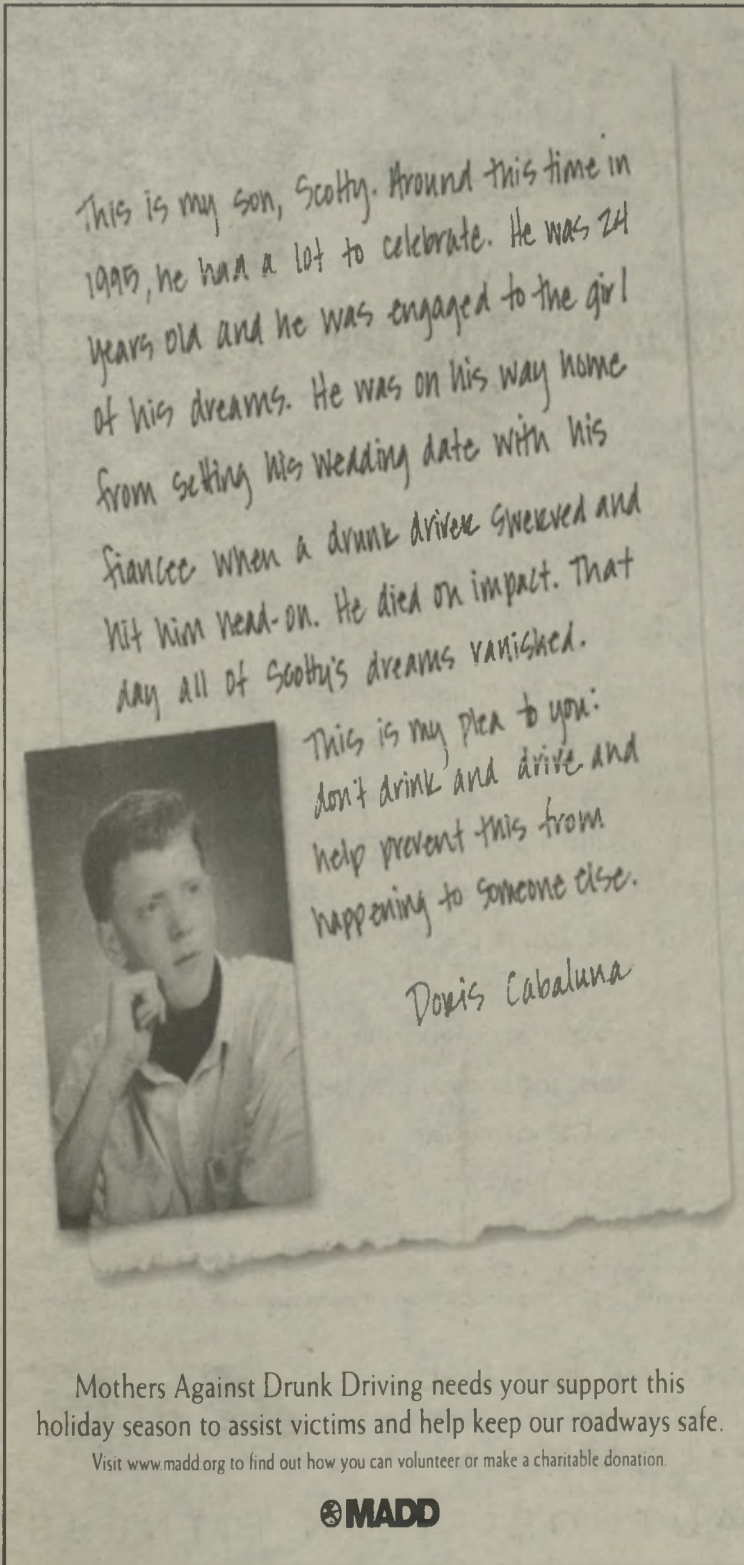 This is my son, Scotty. Around this time in
1995, he had a lot to celebrate. He was 24
years old and he was engaged to the girl
of his dreams. He was on his way home
from setting his wedding date with his
fiancee when a drunk driver swerved and
hit him head-on. He died on impact. That
day all of Scotty's dreams vanished.
This is my plea to you:
don't drink and drive and
help prevent this from
happening to someone else.
Doris Cabaluna
Mothers Against Drunk Driving needs your support this
holiday season to assist victims and help keep our roadways safe.
Visit www.madd.org to find out how you can volunteer or make a charitable donation.
MADD